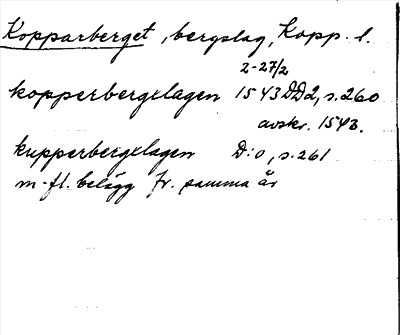 Kopparberget, bergslag, Kopp. l.
2-27/2
kopperbergxlagen 1543 DD2, s. 260
avskr. 1543.
kupperbergxlagen D:o, s. 261
m. fl. belägg fr. samma år